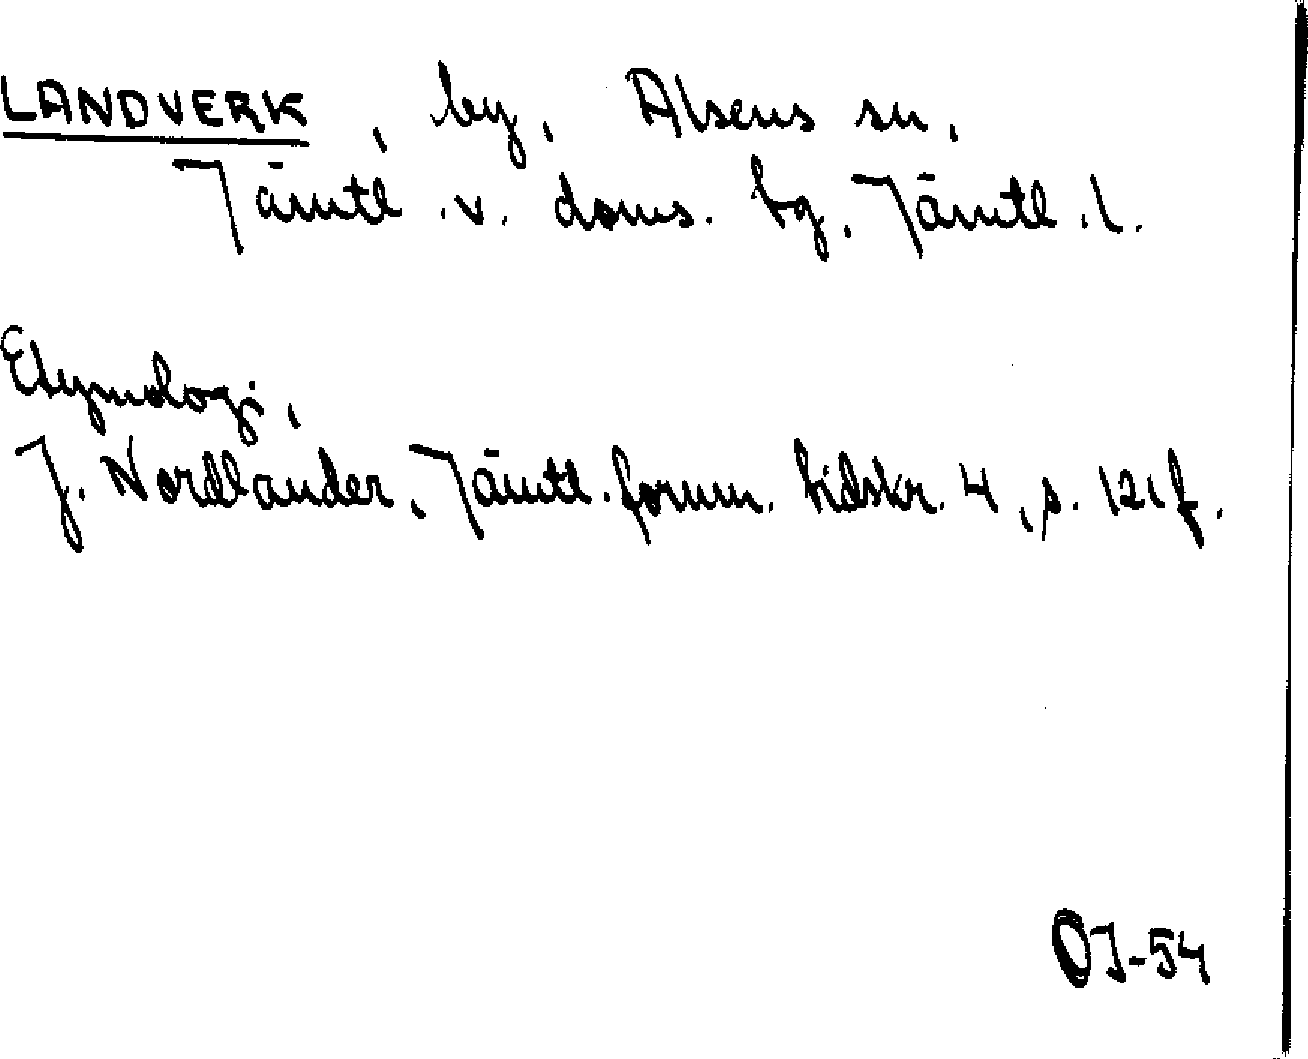 LANDVERK, by, Alsens sn,
Jämtl. v. doms. tg, Jämtl. l.
Etymologi,
J. Nordlander, Jämtl. fornm. tidskr. 4, s. 121 f.
OJ-54